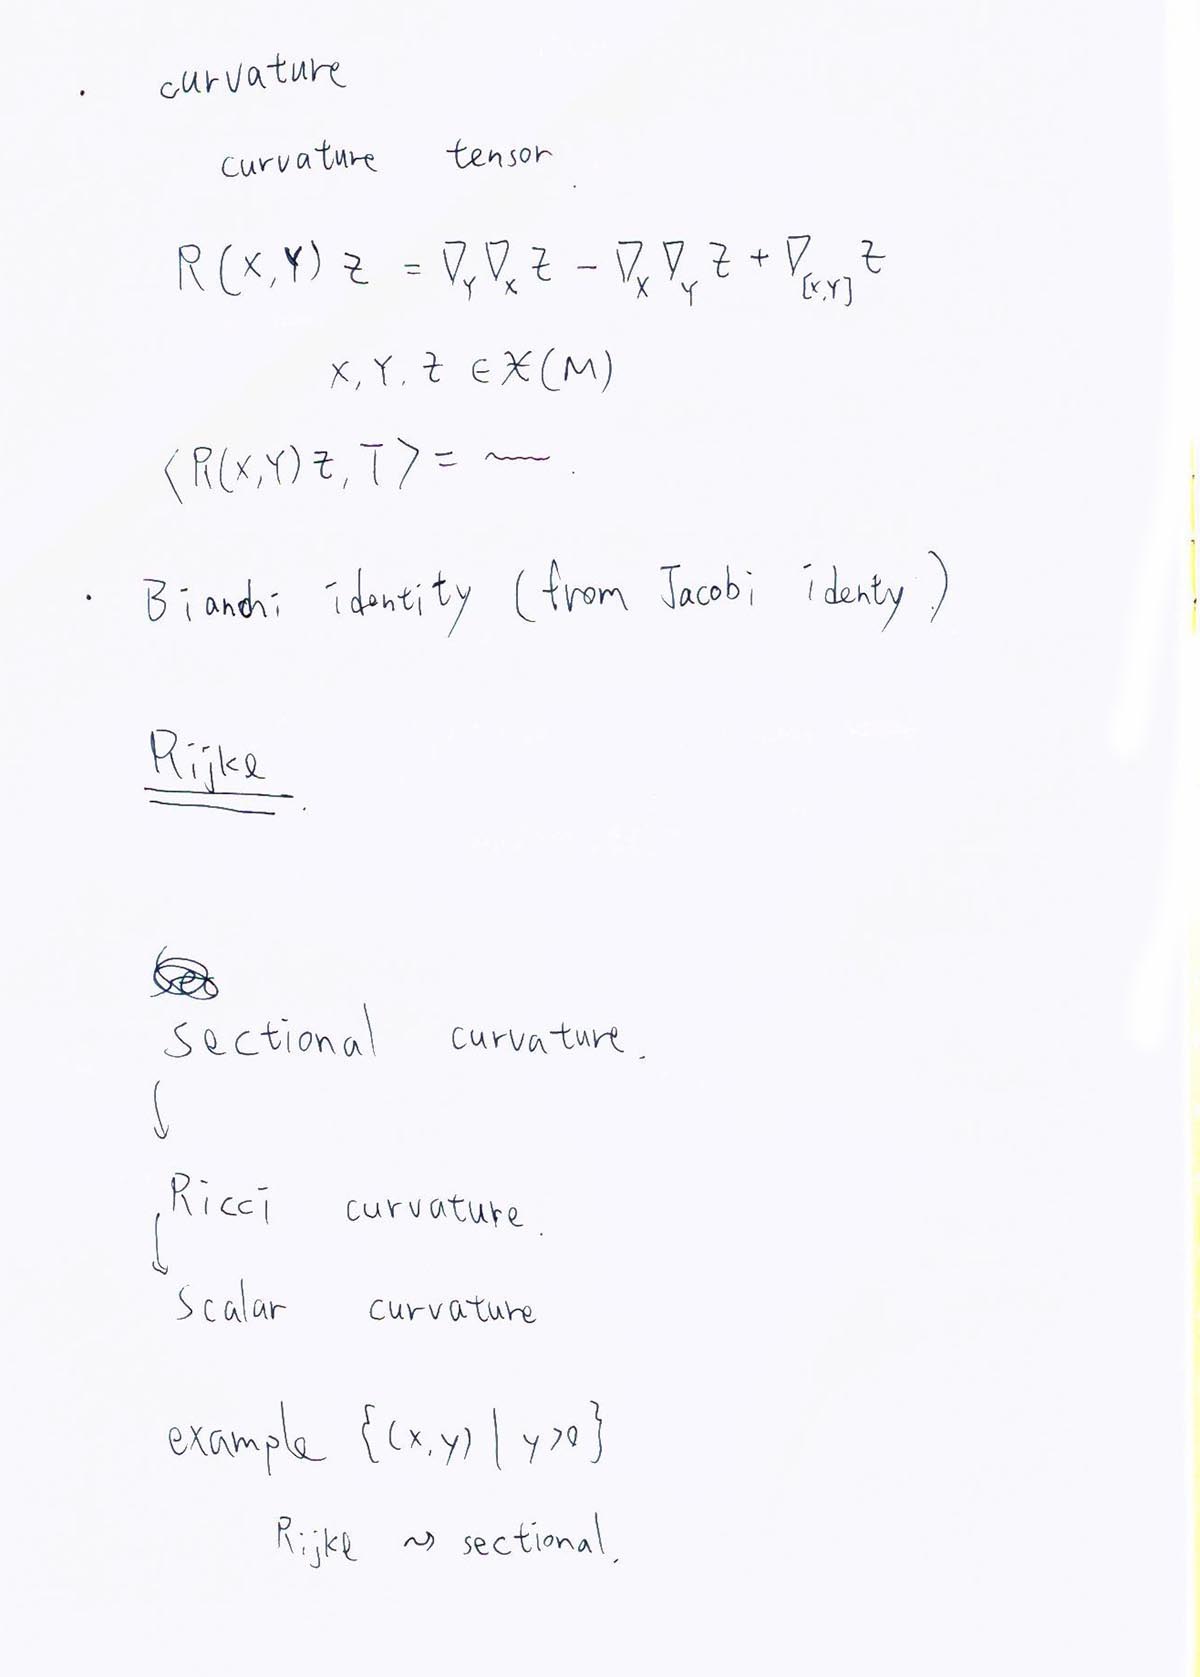 · curvature
curvature tensor.
R(X,Y)Z = ∇_Y ∇_X Z - ∇_X ∇_Y Z + ∇_[X,Y] Z
X, Y, Z ∈ 𝔛(M)
⟨R(X,Y)Z, T⟩ = ~.
· Bianchi identity (from Jacobi identy.)
Rijkl.
sectional curvature.
↓
Ricci curvature.
↓
Scalar curvature
example {(x,y) | y>0}
Rijkl ⇝ sectional.